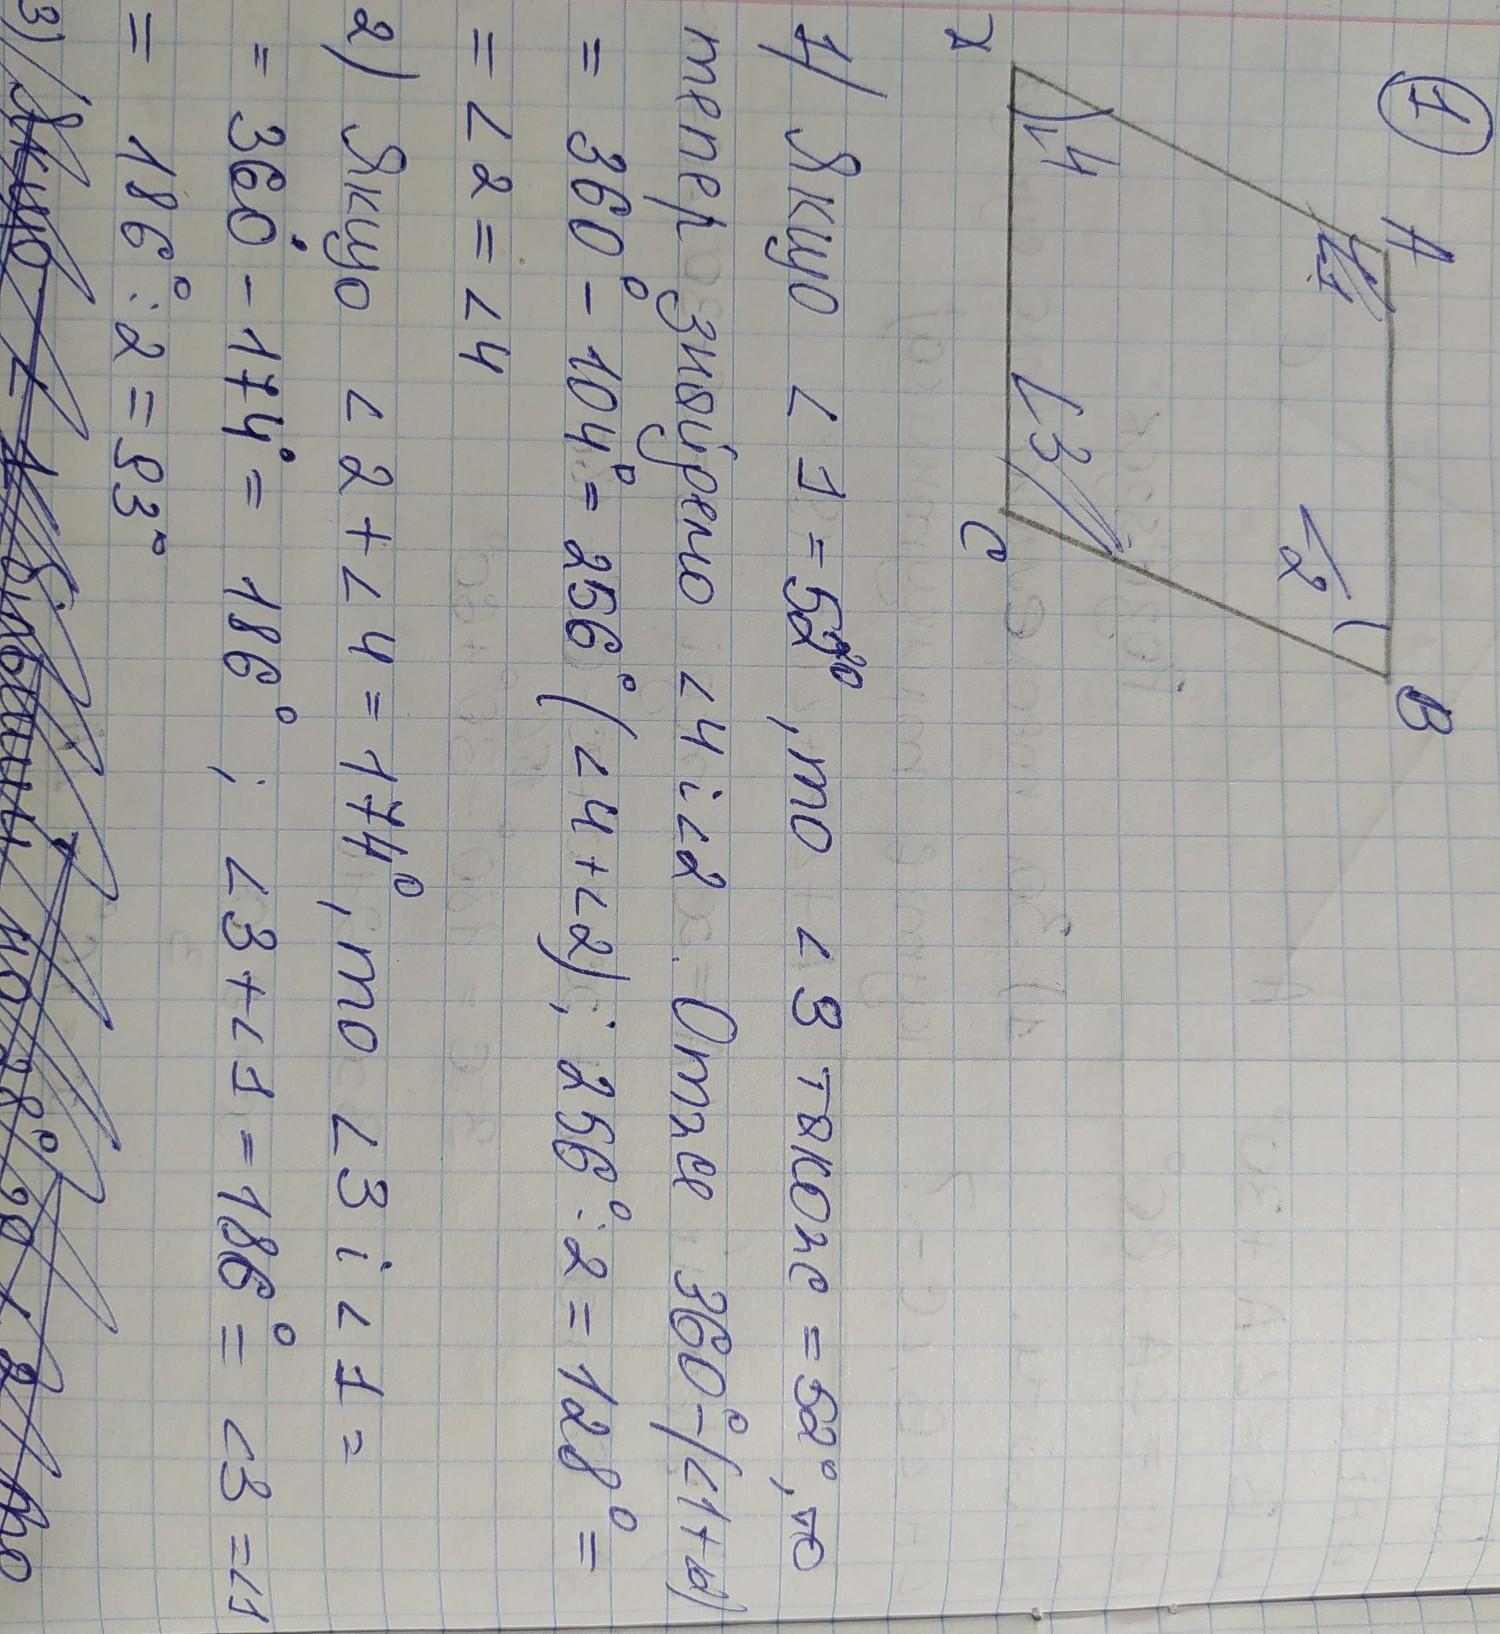 1
A
B
∠1
∠2
∠4
∠3
C
1) Якщо ∠1 = 52°, то ∠3 також = 52°, то
тепер знайдемо ∠4 і ∠2. Отже 360° - (∠1+
= 360° - 104° = 256° (∠4 + ∠2); 256° : 2 = 128° =
= ∠2 = ∠4
2) Якщо ∠2 + ∠4 = 174°, то ∠3 і ∠1 =
= 360° - 174° = 186° ; ∠3 + ∠1 = 186° = ∠3 = ∠1
= 186° : 2 = 93°
3) Якщо